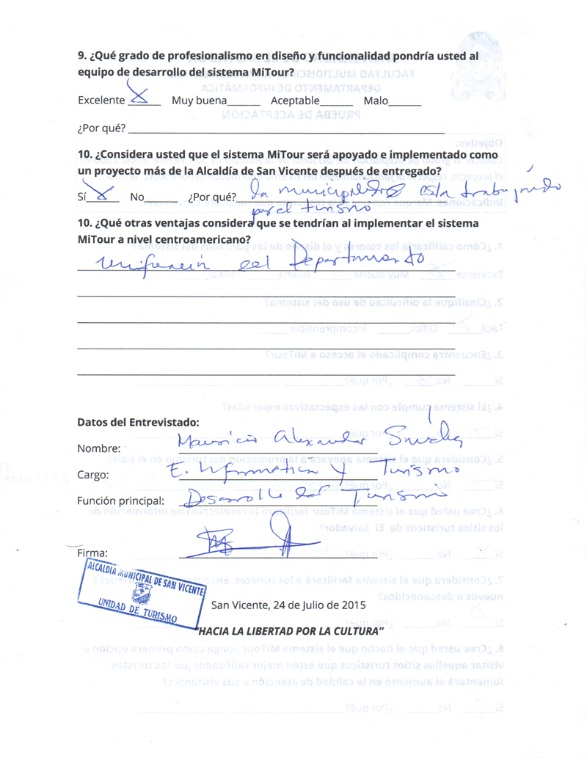 9. ¿Qué grado de profesionalismo en diseño y funcionalidad pondría usted al
equipo de desarrollo del sistema MiTour?
Excelente X Muy buena______ Aceptable______ Malo______
¿Por qué?
10. ¿Considera usted que el sistema MiTour será apoyado e implementado como
un proyecto más de la Alcaldía de San Vicente después de entregado?
Sí X No_____ ¿Por qué? la municipalidad esta trabajando
por el turismo
10. ¿Qué otras ventajas considera que se tendrían al implementar el sistema
MiTour a nivel centroamericano?
unificación del Departamento
Datos del Entrevistado:
Nombre: Mauricio Alexander
Cargo: E. Informatica y Turismo
Función principal: Desarrollo del Turismo
Firma:
ALCALDIA MUNICIPAL DE SAN VICENTE
UNIDAD DE TURISMO
San Vicente, 24 de Julio de 2015
"HACIA LA LIBERTAD POR LA CULTURA"